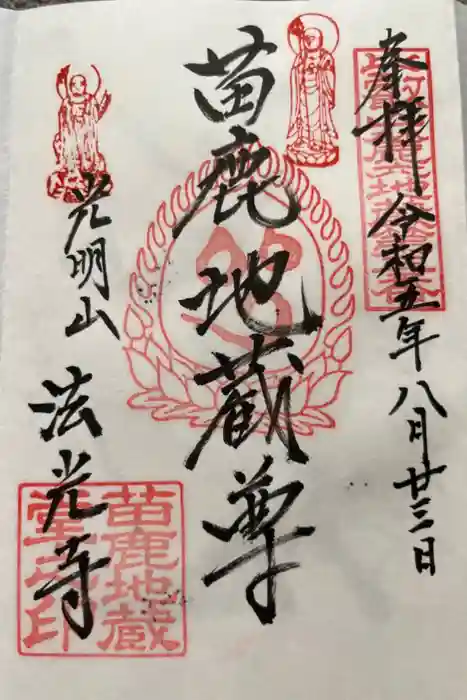 奉拝 令和五年八月廿三日
苗鹿地蔵尊
光明山 法光寺
苗鹿地蔵
堂之印